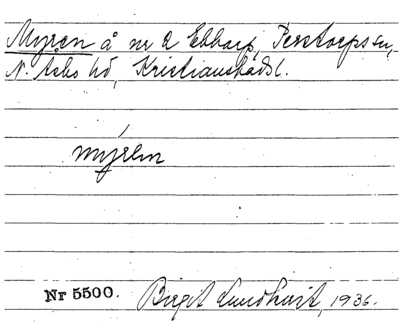 Myren å nr 2 Ebbarp, Perstorps sn,
N. Åsbo hd, Kristianstads l.
mýren
Nr 5500. Birgit Lundkvist, 1936.